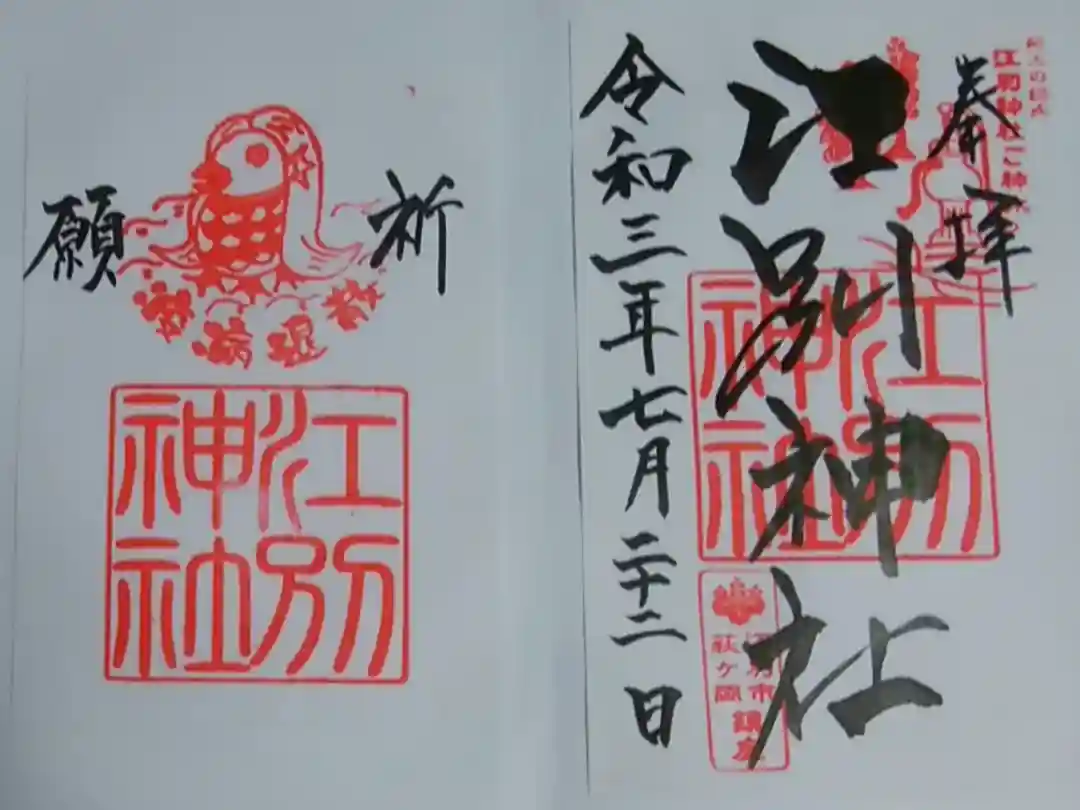 奉拝
江別神社
令和三年七月二十二日
江別神社
江別市
萩ヶ岡
鎮座
祈願
疫病退散
江別神社